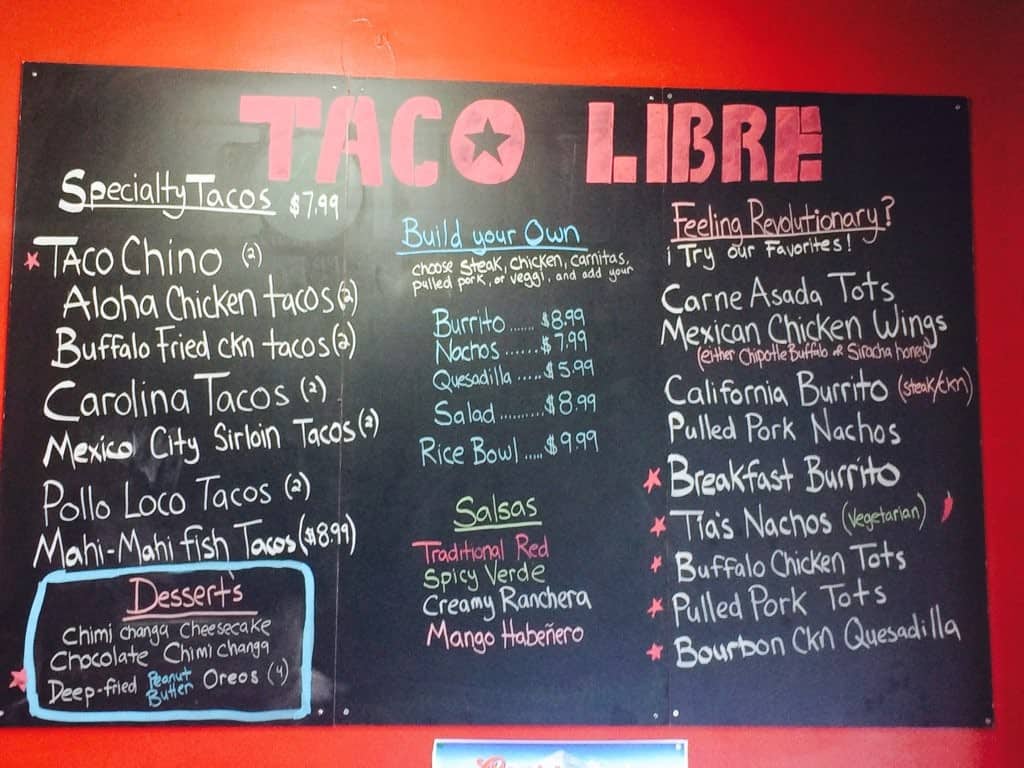 TACO LIBRE
Specialty Tacos $7.99
Taco Chino (2)
Aloha Chicken tacos (2)
Buffalo Fried ckn tacos (2)
Carolina Tacos (2)
Mexico City Sirloin Tacos (2)
Pollo Loco Tacos (2)
Mahi-Mahi fish Tacos ($8.99)
Desserts
Chimi changa Cheesecake
Chocolate Chimi changa
Deep-fried Peanut Butter Oreos (4)
Build your Own
choose steak, chicken, carnitas,
pulled pork, or veggi, and add your
Burrito ...... $8.99
Nachos ....... $7.99
Quesadilla ..... $5.99
Salad .......... $8.99
Rice Bowl ..... $9.99
Salsas
Traditional Red
Spicy Verde
Creamy Ranchera
Mango Habeñero
Feeling Revolutionary?
¡Try our Favorites!
Carne Asada Tots
Mexican Chicken Wings
(either Chipotle Buffalo or Siracha honey)
California Burrito (steak/ckn)
Pulled Pork Nachos
Breakfast Burrito
Tia's Nachos (Vegetarian)
Buffalo Chicken Tots
Pulled Pork Tots
Bourbon Ckn Quesadilla